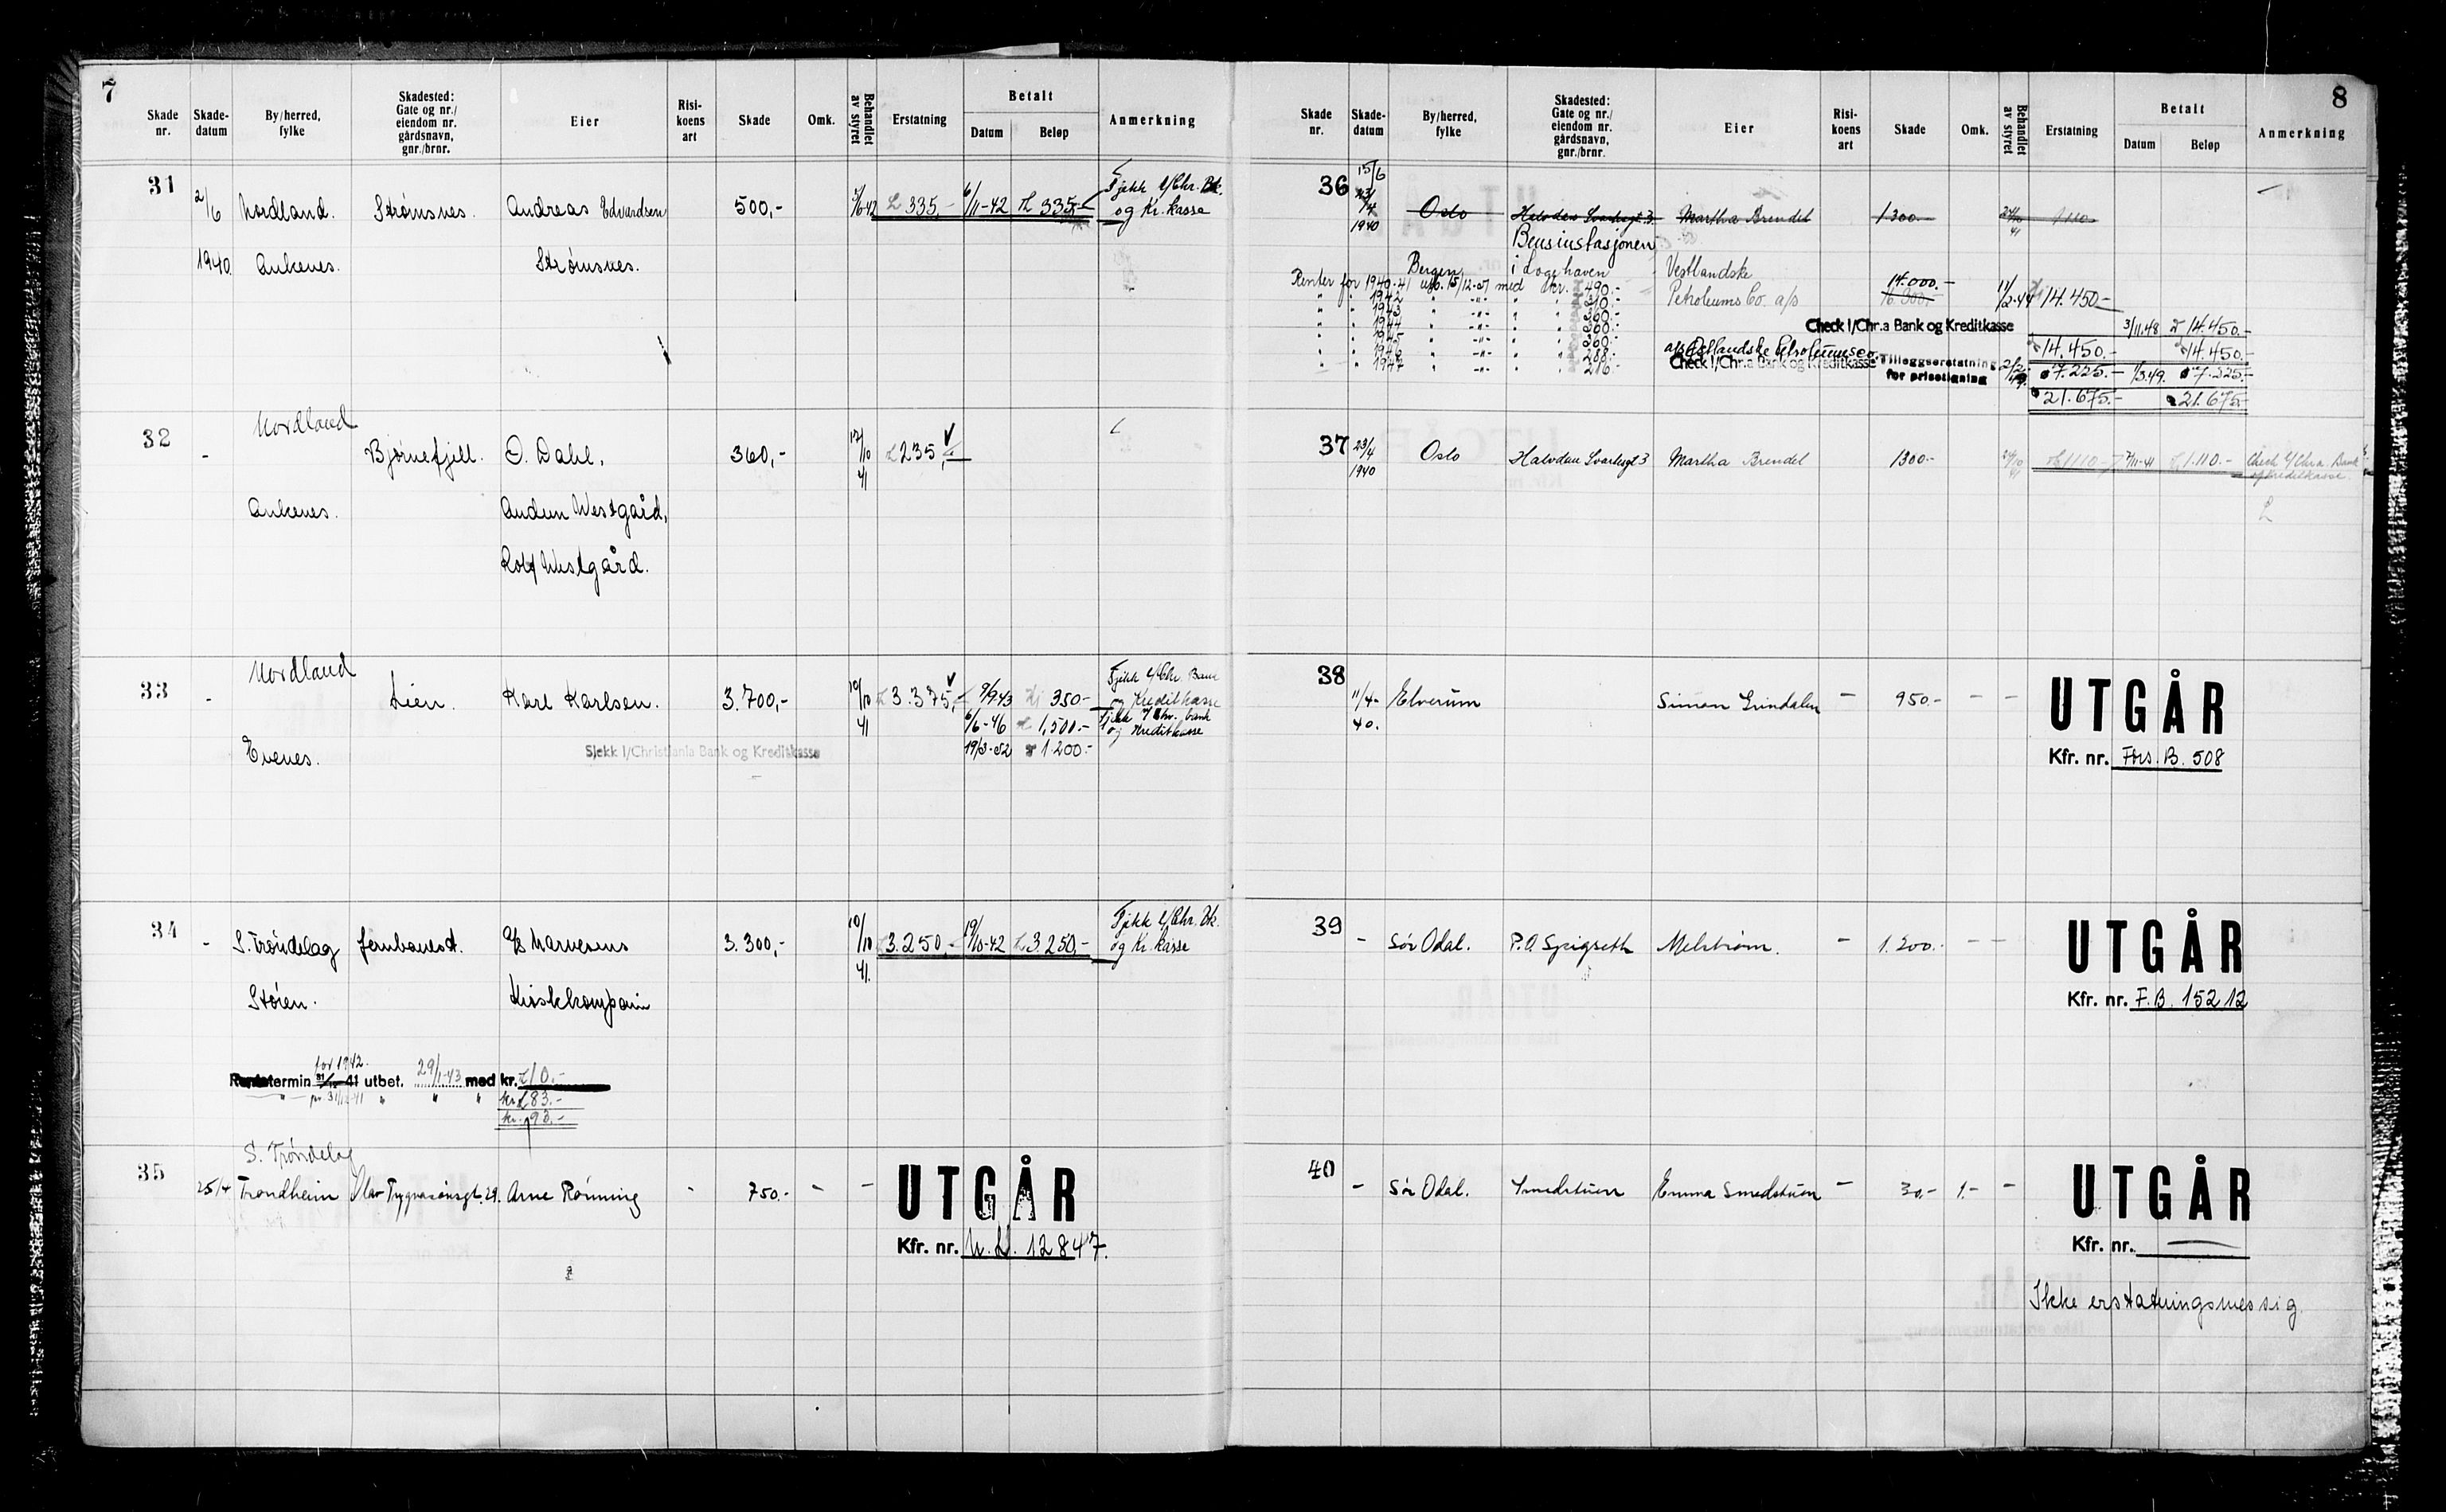 7
Skade nr.
Skade-datum
By/herred, fylke
Skadested: Gate og nr./ eiendom nr. gårdsnavn, gnr./brnr.
Eier
Risi-koens art
Skade
Omk.
Behandlet av styret
Erstatning
Betalt
Datum
Beløp
Anmerkning
31 2/6 Nordland. Strømsnes. Andreas Edvardsen 500,- 335,- 6/11-42 335,-
og Kr. kasse
1940. Ankenes. Strømsnes.
Nordland
32 - Bjørnefjell. O. Dahl, 360,- 17/10 41 235,-
Ankenes. Audun Westgård,
Rolf Westgård.
Nordland
33 - Lien. Karl Karlsen. 3.700,- 10/10 41 3.375,- 9/9 43 350.-
og Kreditkasse
6/6-46 1,500.-
og Kreditkasse
19/3-52 1.200.-
Evenes.
Sjekk l/Christiania Bank og Kreditkasse
34 - S. Trøndelag Jernbanest. A/S Narvesens 3.300,- 10/10 41. 3.250,- 19/10-42 3.250,-
og Kr. kasse
Støren. Kioskkompani
for 1942.
Rentetermin 31/12-41 utbet. 29/1-43 med kr. 10.-
" pr. 31/12-41 " " " kr. 83.-
kr. 93.-
S. Trøndelag
35 25/4 Trondheim Olav Trygvasønsgt. 29. Arne Rønning - 750.- - -
UTGÅR
Kfr. nr. N.L. 12847.
8
Skade nr.
Skade-datum
By/herred, fylke
Skadested: Gate og nr./ eiendom nr. gårdsnavn, gnr./brnr.
Eier
Risi-koens art
Skade
Omk.
Behandlet av styret
Erstatning
Betalt
Datum
Beløp
Anmerkning
15/6
36 1940 Oslo Halvdan Svartesgt 3 Martha Brendel 1300.- 1110.-
Bensinstasjonen
Bergen i Logehaven Vestlandske
Renter for 1940-41 utb. 15/12-51 med kr. 490.-
Petroleums Co. a/s 14.000.- 11/2-44 14.450.-
" " 1942 " -"- " " 310.-
" " 1943 " -"- " " 360.-
" " 1944 " -"- " " 360.-
" " 1945 " -"- " " 360.-
" " 1946 " -"- " " 288.-
" " 1947 " -"- " " 216.-
Check l/Chr.a Bank og Kreditkasse 3/11.48 14.450.-
14.450.- 14.450.-
a/s Vestlandske Petroleumsco.
Check l/Chr.a Bank og Kreditkasse Tilleggserstatning for prisstigning 7.225.- 1/3.49. 7.225.-
21.675.- 21.675.-
37 23/4 1940 Oslo Halvdan Svartesgt 3 Martha Brendel 1300.- 1110.- 7/11-41 1.110.- Check l/Chr.a. Bank
og Kreditkasse.
38 11/4-40. Elverum Simon Grindalen - 950.- - -
UTGÅR
Kfr. nr. Fors. B. 508
39 - Sør Odal. P.A Spigseth Melstrøm. - 1.200.- - -
UTGÅR
Kfr. nr. F.B. 15212
40 - Sør Odal. Smedstuen Emma Smedstuen - 30.- 1.- -
UTGÅR
Kfr. nr. —
Ikke erstatningsmessig.